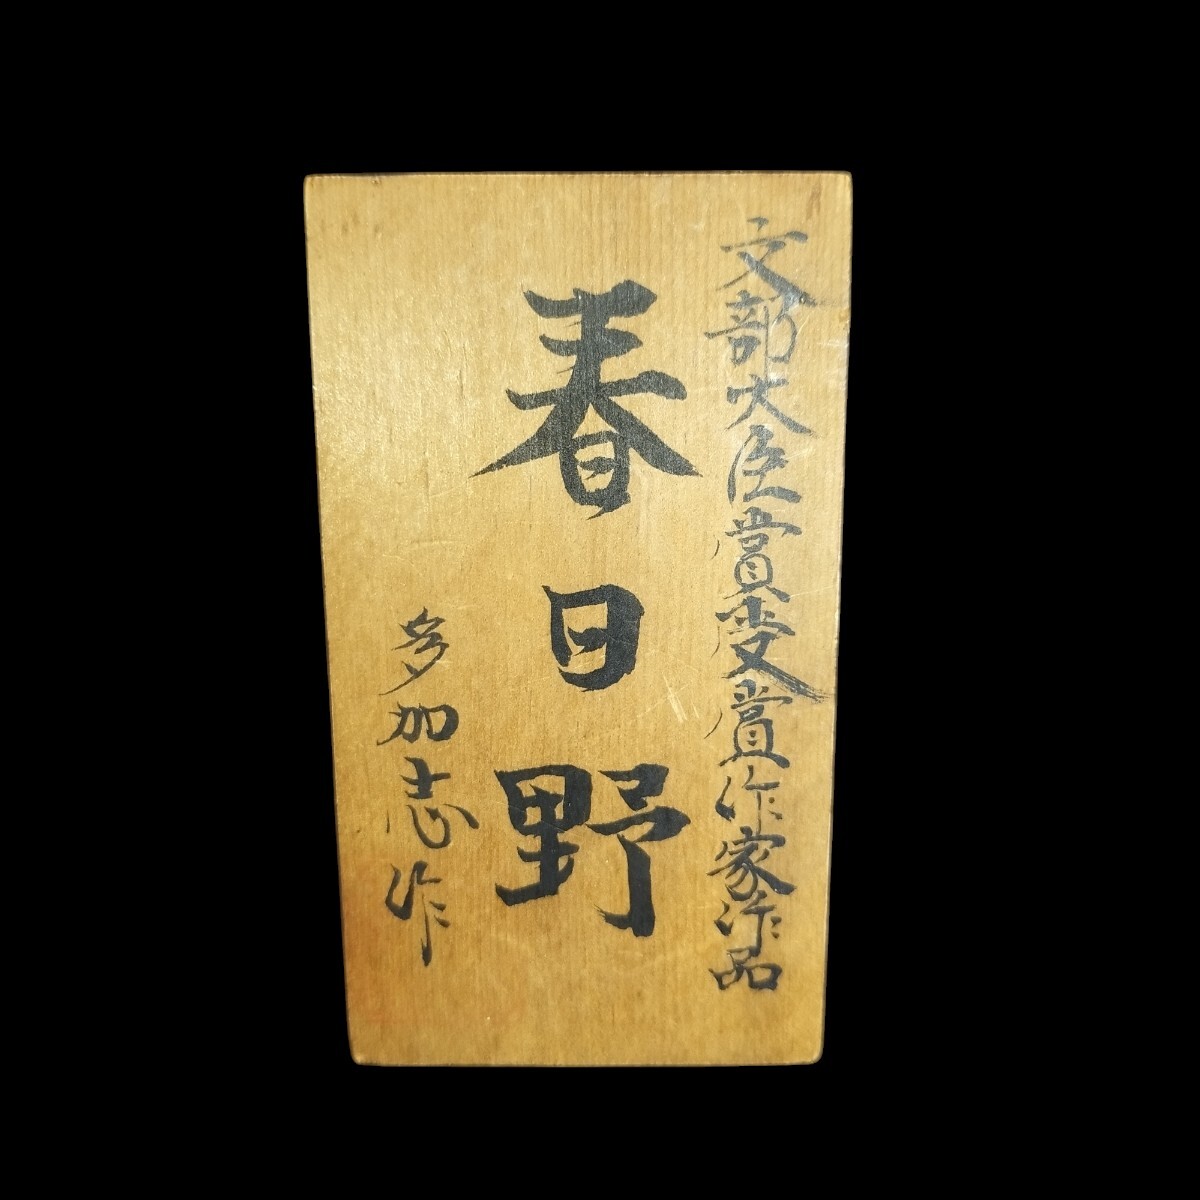 文部大臣賞受賞作家作品
春日野
多加志作